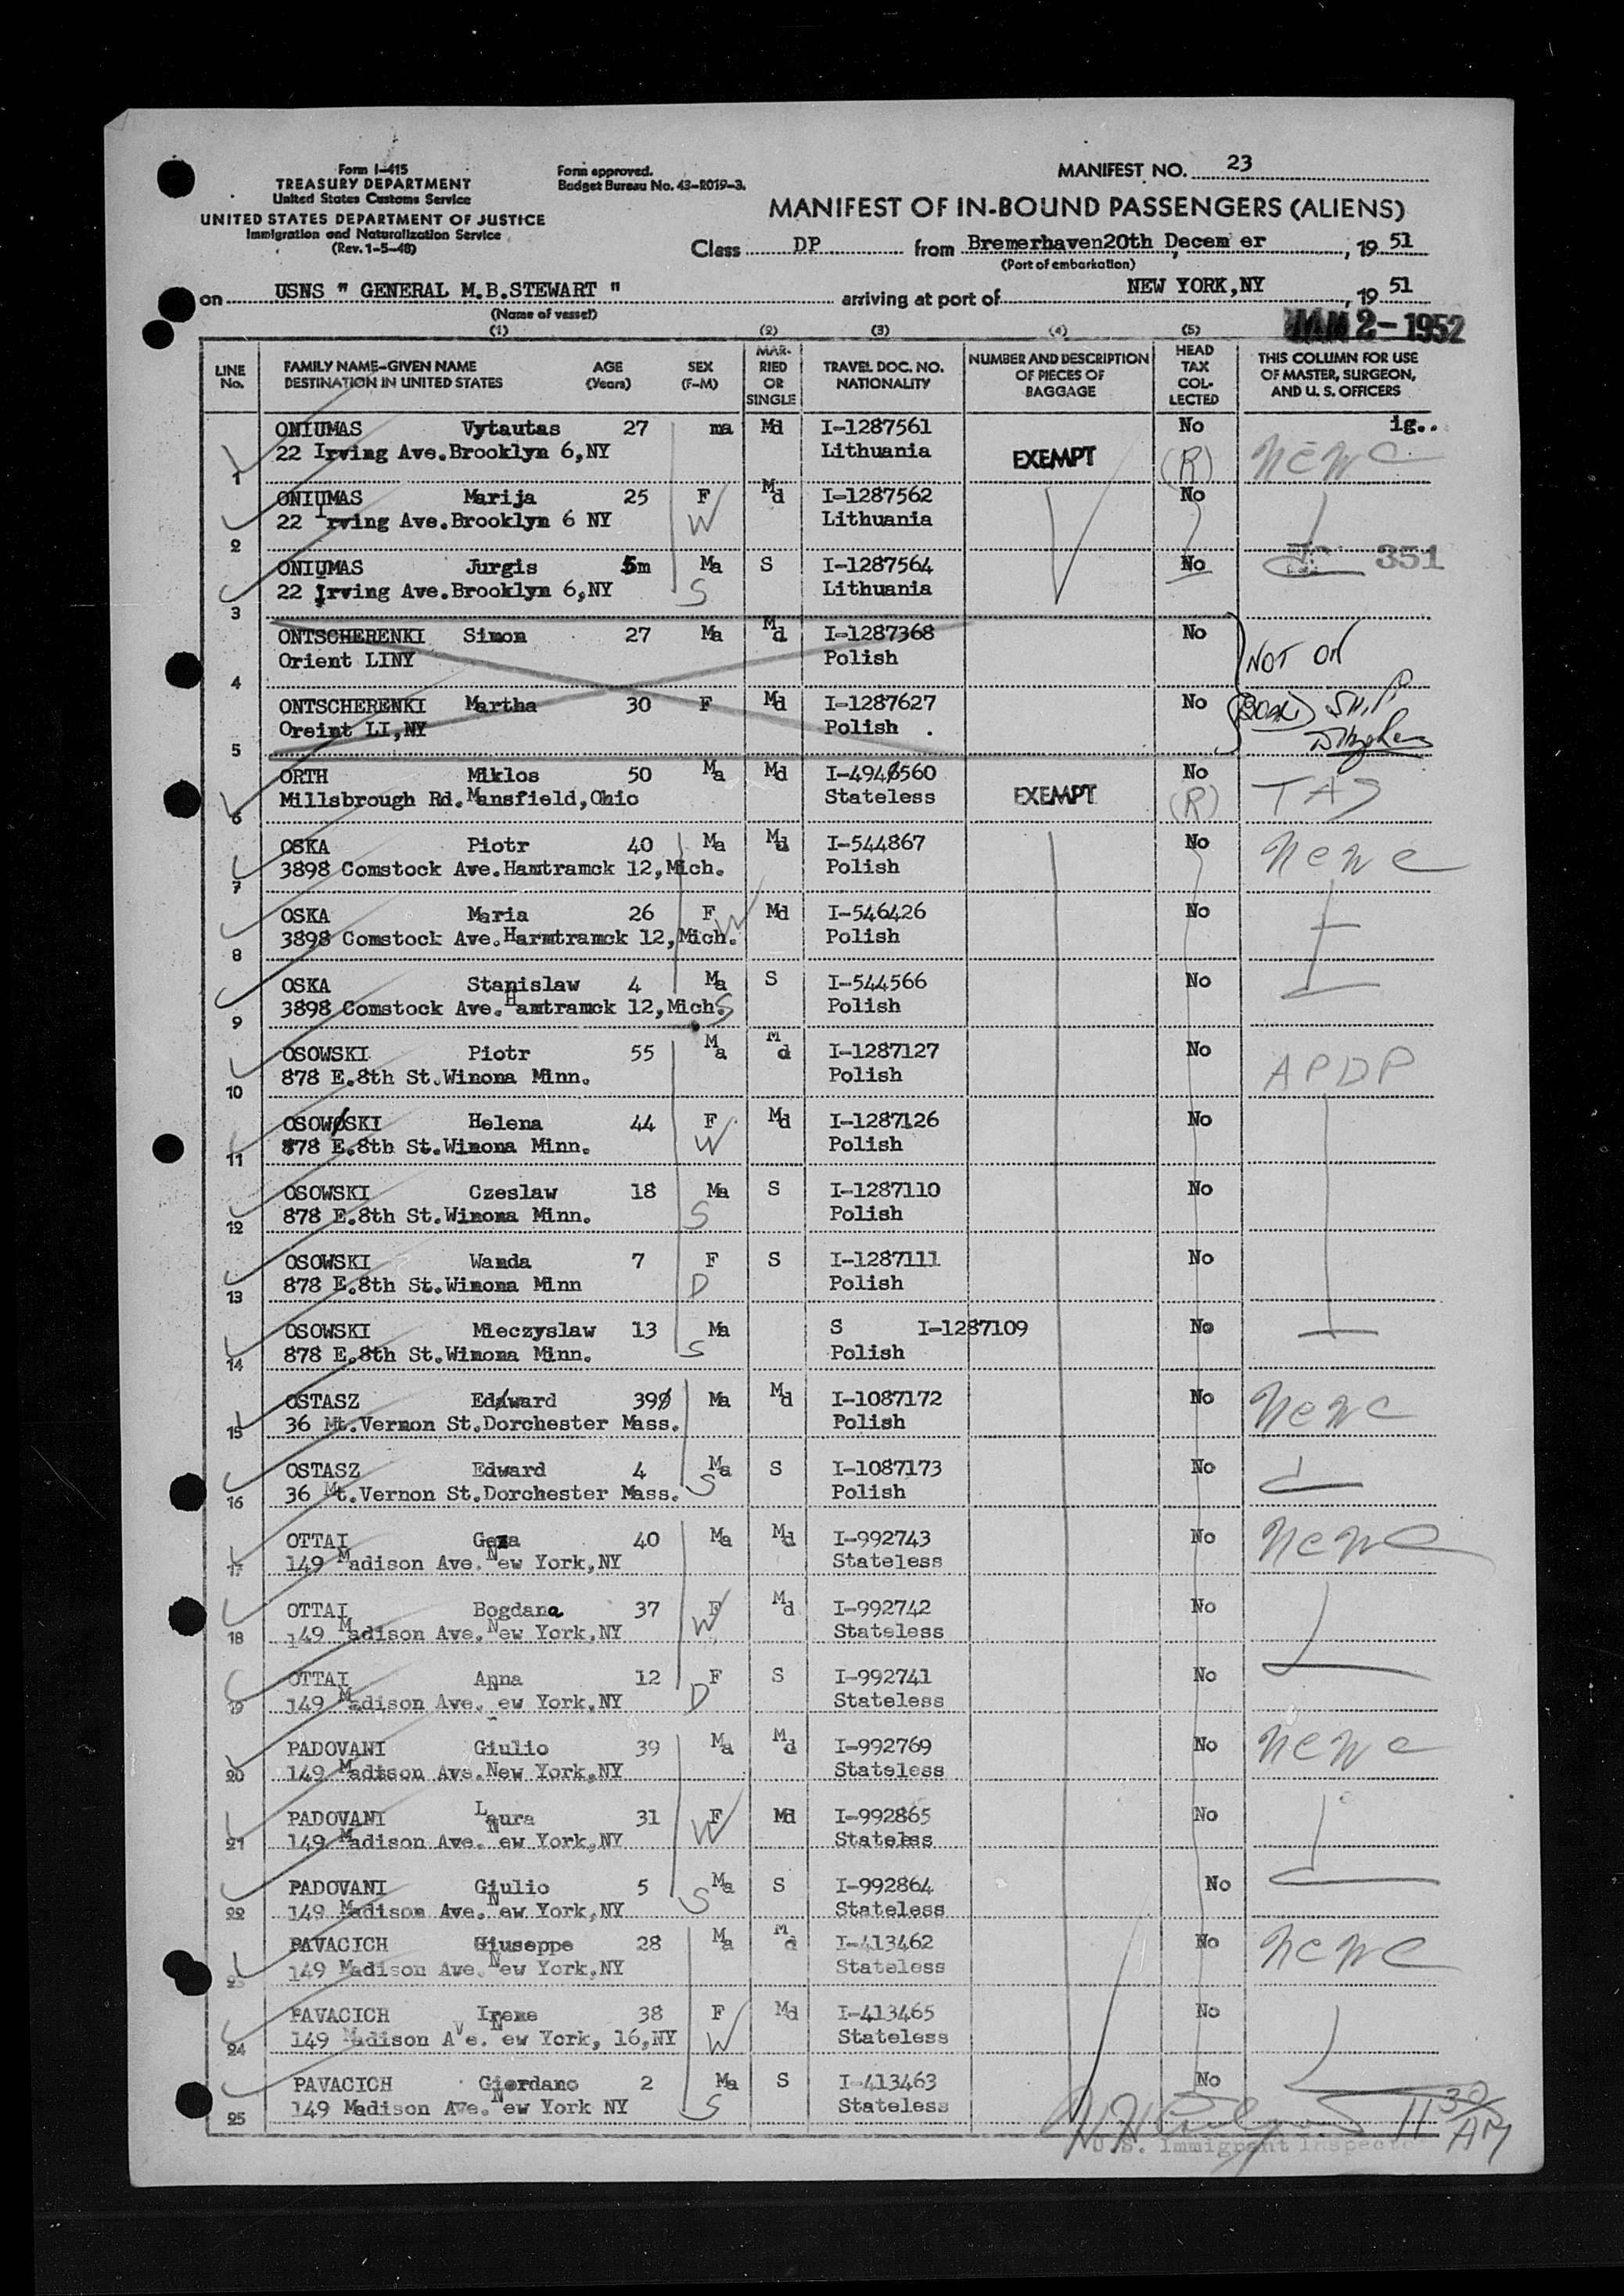 Form I-415
TREASURY DEPARTMENT
United States Customs Service
UNITED STATES DEPARTMENT OF JUSTICE
Immigration and Naturalization Service
(Rev. 1-5-48)
Form approved.
Budget Bureau No. 43-R019-3.
MANIFEST NO. 23
MANIFEST OF IN-BOUND PASSENGERS (ALIENS)
Class DP from Bremerhaven20th Decem er, 19 51
(Port of embarkation)
on USNS " GENERAL M.B.STEWART " arriving at port of NEW YORK,NY, 19 51
(Name of vessel)
2- 1952
(1) (2) (3) (4) (5)
LINE No. FAMILY NAME-GIVEN NAME DESTINATION IN UNITED STATES AGE (Years) SEX (F-M) MARRIED OR SINGLE TRAVEL DOC. NO. NATIONALITY NUMBER AND DESCRIPTION OF PIECES OF BAGGAGE HEAD TAX COLLECTED THIS COLUMN FOR USE OF MASTER, SURGEON, AND U. S. OFFICERS
ONIUMAS Vytautas 27 ma Md I-1287561 No ig..
1 22 Irving Ave.Brooklyn 6,NY Lithuania EXEMPT (R) NCWC
ONIUMAS Marija 25 F Md I-1287562 No
2 22 Irving Ave.Brooklyn 6 NY W Lithuania
ONIUMAS Jurgis 5m Ma S I-1287564 No 351
3 22 Irving Ave.Brooklyn 6,NY S Lithuania
ONTSCHERENKI Simon 27 Ma Md I-1287368 No
4 Orient LINY Polish NOT ON
ONTSCHERENKI Martha 30 F Md I-1287627 No SHIP
5 Oreint LI,NY Polish .
ORTH Miklos 50 Ma Md I-4946560 No
6 Millsbrough Rd.Mansfield,Ohio Stateless EXEMPT (R) TAS
OSKA Piotr 40 Ma Md I-544867 No NCWC
7 3898 Comstock Ave.Hamtramck 12,Mich. Polish
OSKA Maria 26 F W Md I-546426 No
8 3898 Comstock Ave.Harmtramck 12,Mich. Polish
OSKA Stanislaw 4 Ma S I-544566 No
9 3898 Comstock Ave.Hamtramck 12,Mich. S Polish
OSOWSKI Piotr 55 Ma Md I-1287127 No APDP
10 878 E.8th St.Winona Minn. Polish
OSOWOSKI Helena 44 F Md I-1287126 No
11 878 E.8th St.Winona Minn. W Polish
OSOWSKI Czeslaw 18 Ma S I-1287110 No
12 878 E.8th St.Winona Minn. S Polish
OSOWSKI Wanda 7 F S I-1287111 No
13 878 E.8th St.Winona Minn D Polish
OSOWSKI Mieczyslaw 13 Ma S I-1287109 No
14 878 E.8th St.Winona Minn. S Polish
OSTASZ Edward 39 Ma Md I-1087172 No NCWC
15 36 Mt.Vernon St.Dorchester Mass. Polish
OSTASZ Edward 4 Ma S I-1087173 No
16 36 Mt.Vernon St.Dorchester Mass. S Polish
OTTAI Geza 40 Ma Md I-992743 No NCWC
17 149 Madison Ave.New York,NY Stateless
OTTAI Bogdana 37 F Md I-992742 No
18 149 Madison Ave.New York,NY W Stateless
OTTAI Anna 12 F S I-992741 No
19 149 Madison Ave.New York,NY D Stateless
PADOVANI Giulio 39 Ma Md I-992769 No NCWC
20 149 Madison Ave.New York,NY Stateless
PADOVANI Laura 31 F Md I-992865 No
21 149 Madison Ave.New York,NY W Stateless
PADOVANI Giulio 5 Ma S I-992864 No
22 149 Madison Ave.New York,NY S Stateless
PAVACICH Giuseppe 28 Ma Md I-413462 No NCWC
23 149 Madison Ave.New York,NY Stateless
PAVACICH Irene 38 F Md I-413465 No
24 149 Madison Ave.New York, 16,NY W Stateless
PAVACICH Giordano 2 Ma S I-413463 No
25 149 Madison Ave.New York NY S Stateless
11 30 AM
U.S. Immigrant Inspector